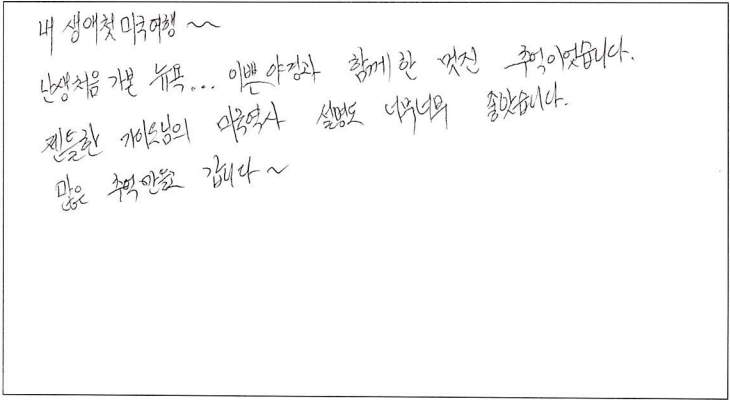 내 생애 첫 미국여행 ~
난생처음 가본 뉴욕... 이쁜 야경과 함께 한 멋진 추억이었습니다.
젠틀한 가이드님의 미국역사 설명도 너무너무 좋았습니다.
많은 추억 만들고 갑니다~